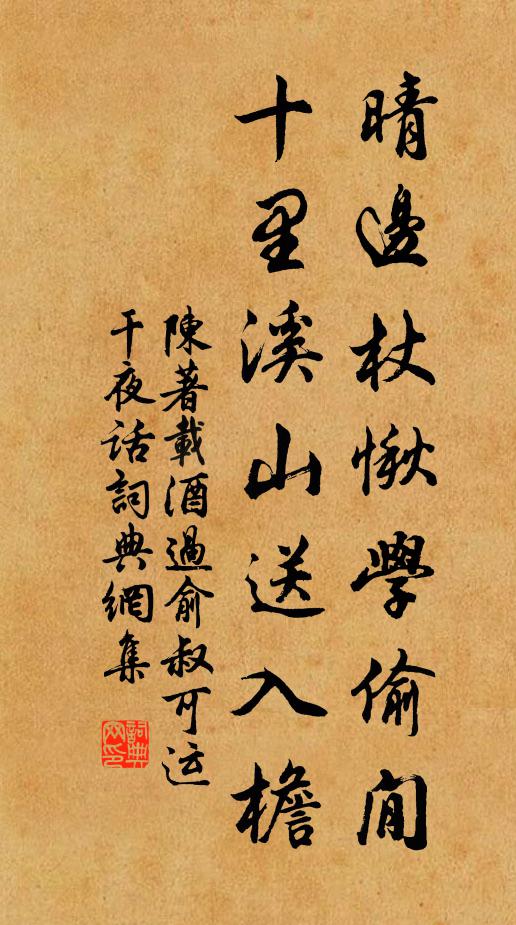 晴邊杖愀學偷閒
十里溪山送入檐
陳著載酒過俞叔可运
干夜话詞典網集
詞典网印